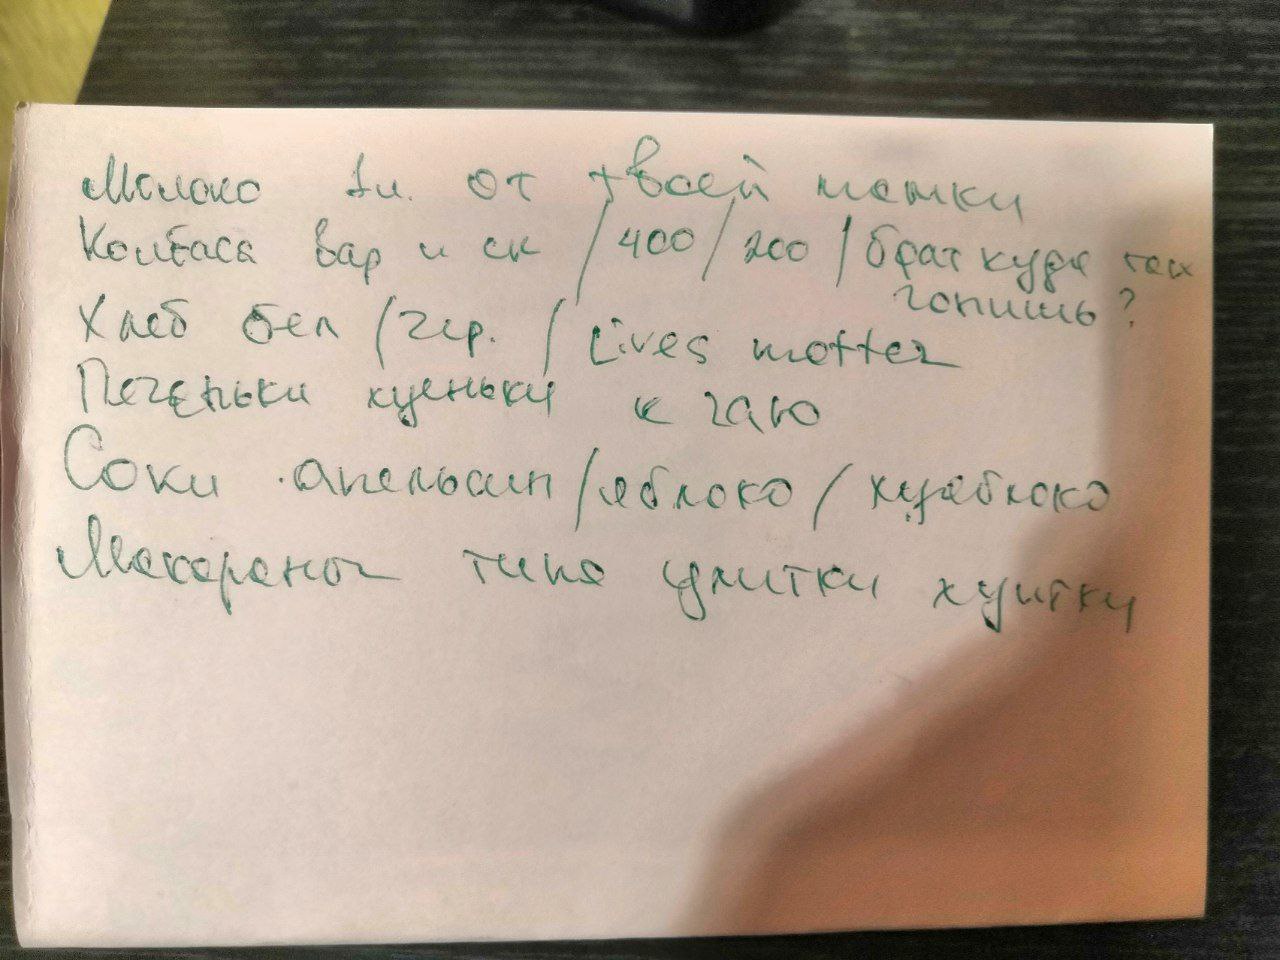 Молоко 1л. от твоей матки
Колбаса вар и ск / 400 / 200 / брат куда так
гонишь?
Хлеб бел / чер. / Lives matter
Печеньки хуеньки к чаю
Соки апельсин / яблоко / хуяблоко
Макарены типа улитки хуитки